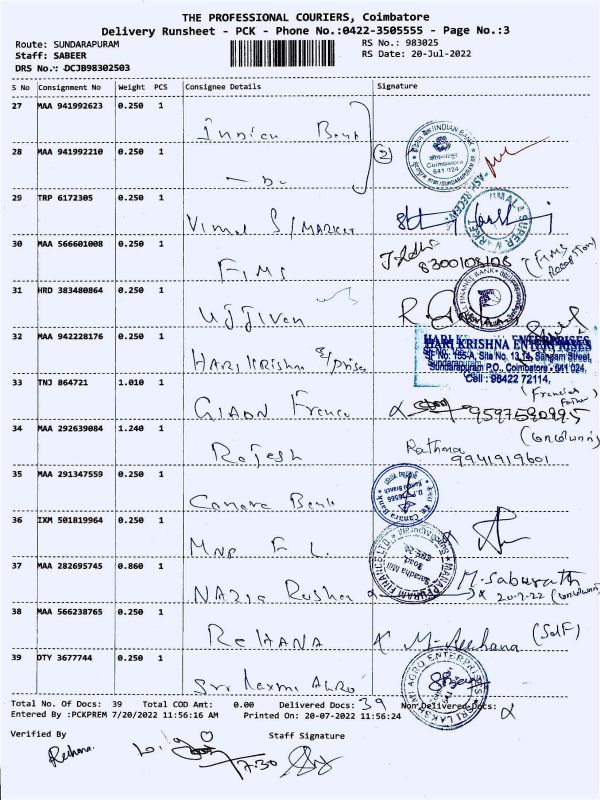 THE PROFESSIONAL COURIERS, Coimbatore
Delivery Runsheet - PCK - Phone No.:0422-3505555 - Page No.:3
Route: SUNDARAPURAM RS No.: 983025
Staff: SABEER RS Date: 20-Jul-2022
DRS No.: DCJB98302503
S No Consignment No Weight PCS Consignee Details Signature
27 MAA 941992623 0.250 1 Indian Bank
28 MAA 941992210 0.250 1 - Do 2
INDIAN BANK Coimbatore 641 024
29 TRP 6172305 0.250 1 Vimal S/Market
30 MAA 566601008 0.250 1 FIMS 8300108108 (FIMS Reception)
31 HRD 383480864 0.250 1 Ujjivan
FINANCE BANK
32 MAA 942228176 0.250 1 HARI Krishna E/prise
HARI KRISHNA ENTERPRISES
SF No. 155-A, Site No. 13,14, Sangam Street,
Sundarapuram P.O., Coimbatore - 641 024.
Cell : 98422 72114,
33 TNJ 864721 1.010 1 GIAON Franco 9597590995
34 MAA 292639084 1.240 1 Rajesh Rathna 9941919601
35 MAA 291347559 0.250 1 Canara Bank
Canara Bank
36 IXM 501819964 0.250 1 MNP F L.
MANAPPURAM FINANCE LTD
Saradha Mill Road
37 MAA 282695745 0.860 1 NAZIA Rusha M. Saburath 20-7-22
38 MAA 566238765 0.250 1 ReHANA M. Reehana (Self)
39 DTY 3677744 0.250 1 Sri Laxmi AGRO
SRI LAKSHMI AGRO ENTERPRISES
Total No. Of Docs: 39 Total COD Amt: 0.00 Delivered Docs: 39 Non Delivered Docs:
Entered By :PCKPREM 7/20/2022 11:56:16 AM Printed On: 20-07-2022 11:56:24
Verified By Staff Signature
Reehana. 7:30